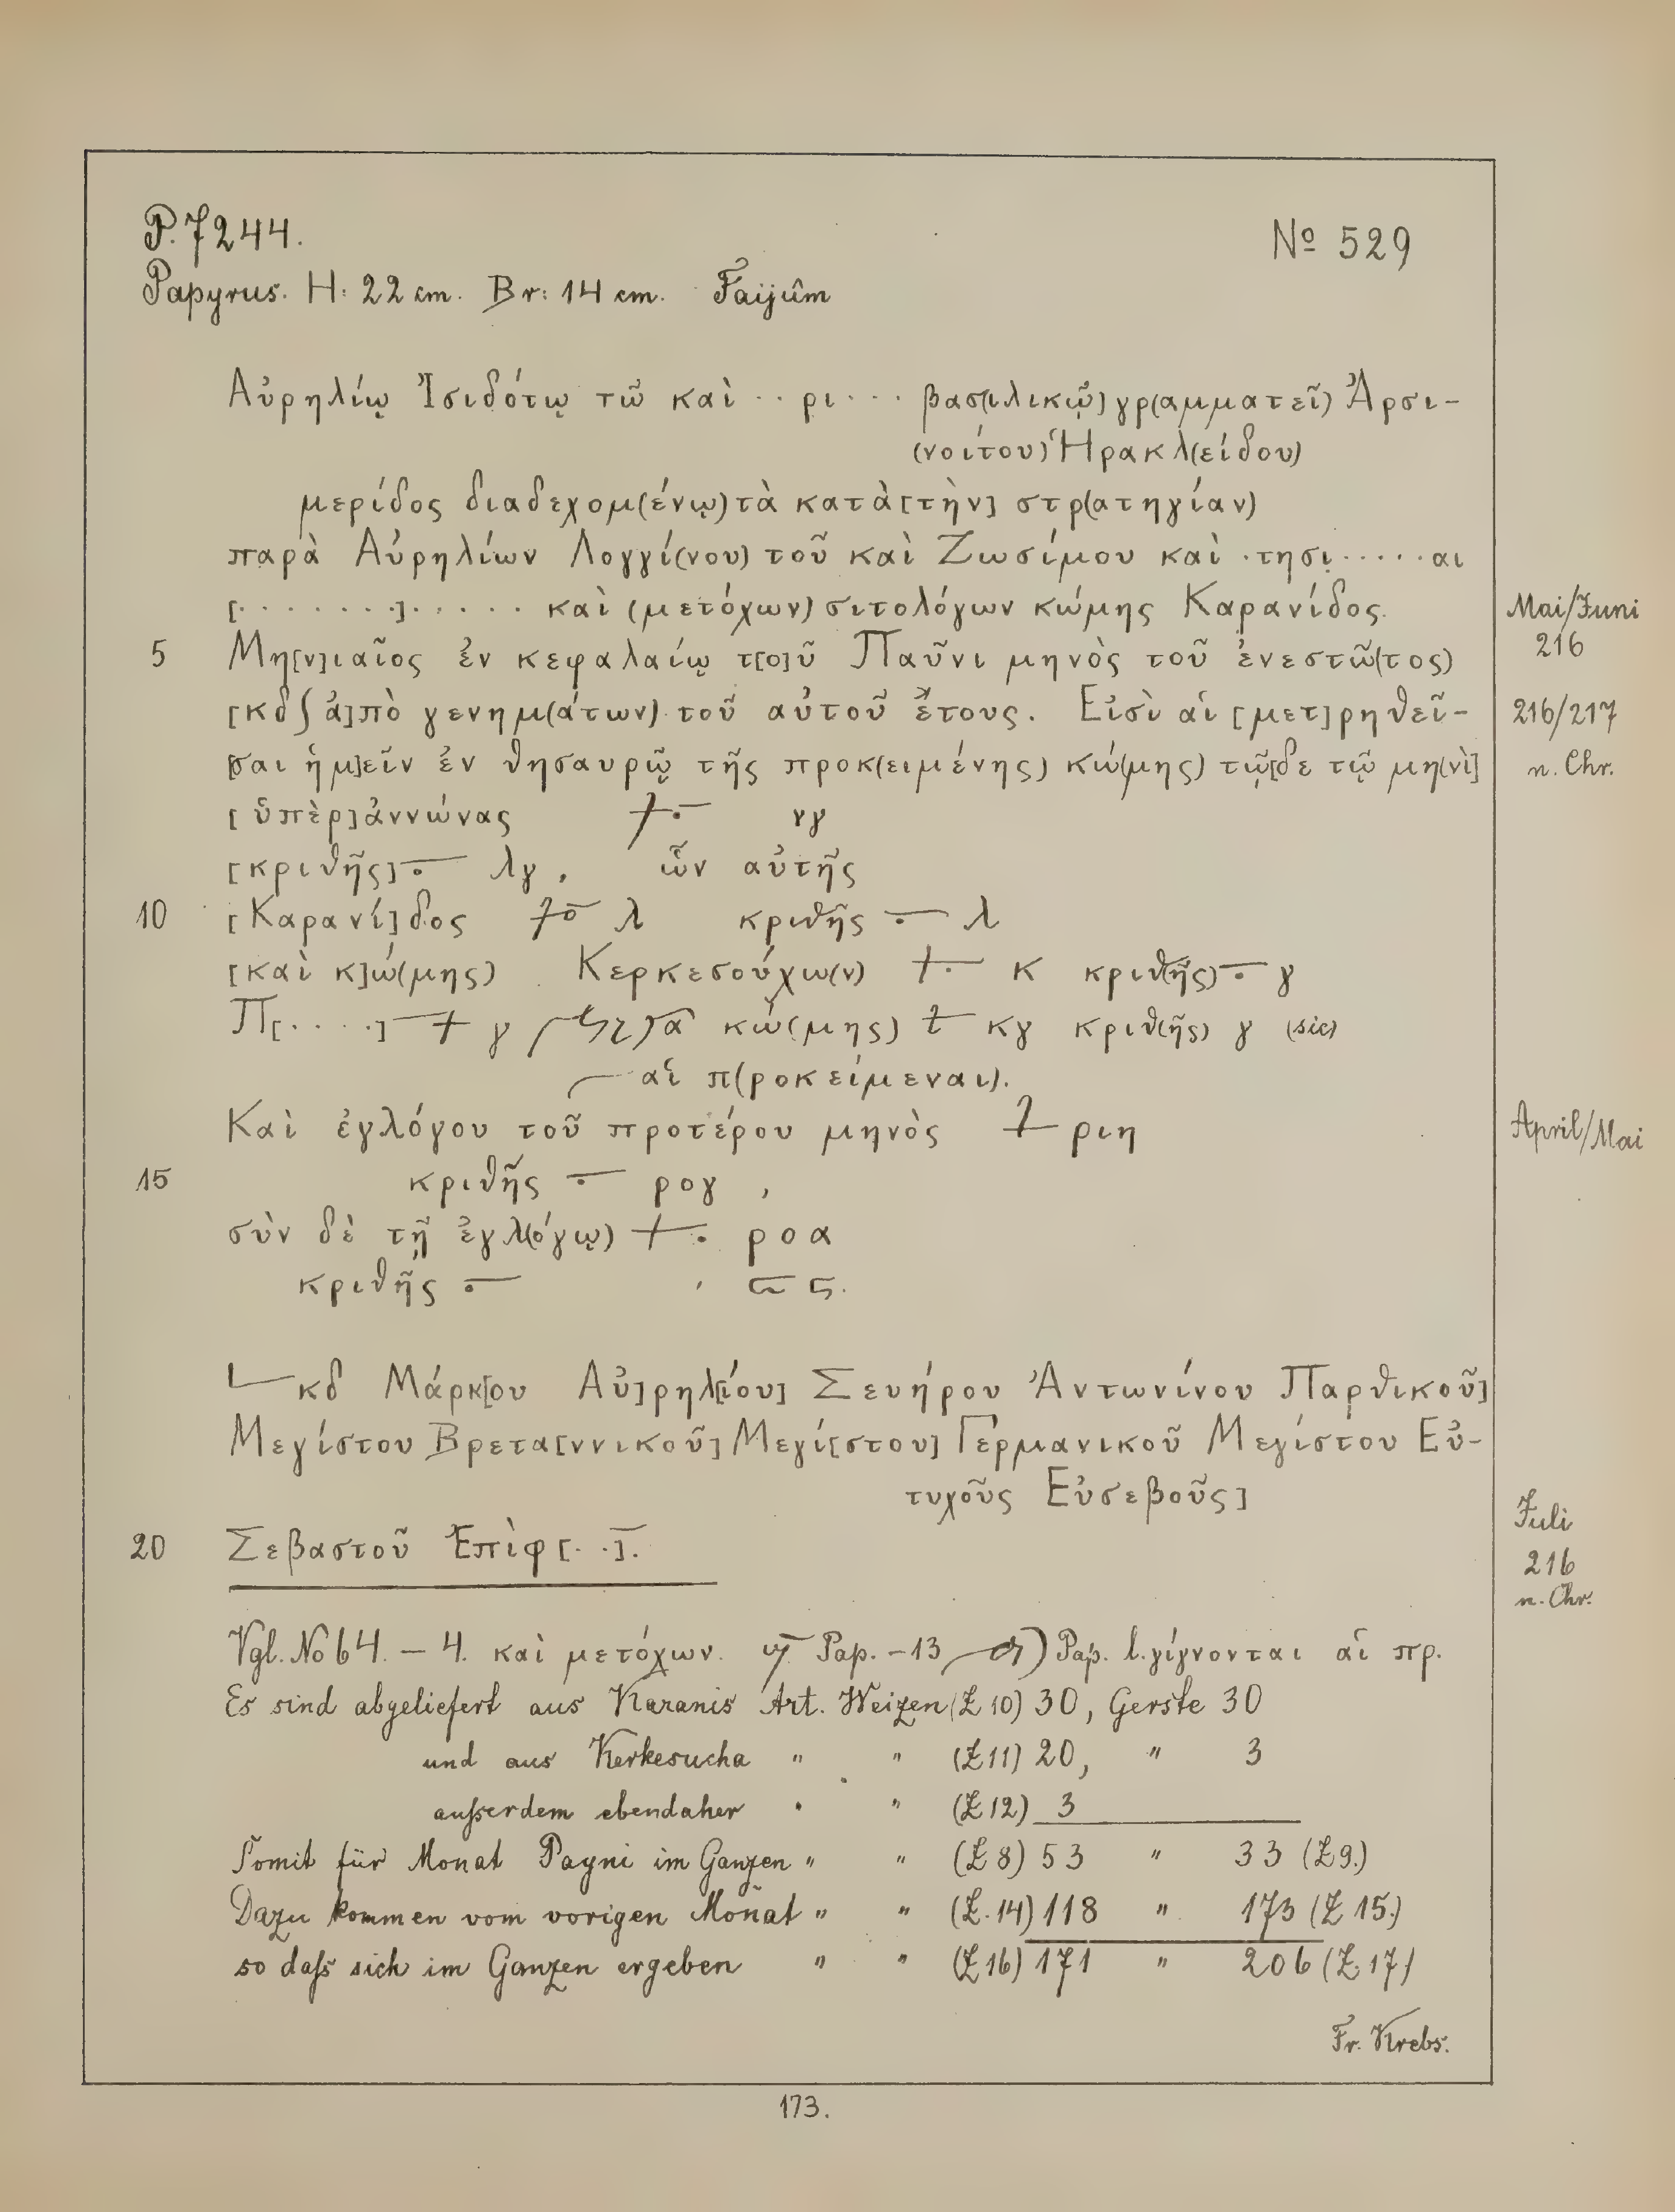 P. 7244.
№ 529
Papyrus. H: 22 cm. Br: 14 cm. Faijûm
Αὐρηλίῳ Ἰσιδότῳ τῷ καὶ ·· ρι ··· βασ(ιλικῷ) γρ(αμματεῖ) Ἀρσι-
(νοίτου) Ἡρακλ(είδου)
μερίδος διαδεχομ(ένῳ) τὰ κατὰ [τὴν] στρ(ατηγίαν)
παρὰ Αὐρηλίων Λογγί(νου) τοῦ καὶ Ζωσίμου καὶ ·τησι ····· αι
[· · · · · · · ·] · · · · · καὶ (μετόχων) σιτολόγων κώμης Καρανίδος.
Mai/Juni
216
5 Μη[ν]ιαῖος ἐν κεφαλαίῳ τ[ο]ῦ Παῦνι μηνὸς τοῦ ἐνεστῶ(τος)
[κδ ʃ ἀ]πὸ γενημ(άτων) τοῦ αὐτοῦ ἔτους. Εἰσὶ αἱ [μετ]ρηθεῖ-
216/217
n. Chr.
[σαι ἡμ]εῖν ἐν θησαυρῷ τῆς προκ(ειμένης) κώ(μης) τῷ[δε τῷ μη(νὶ)]
[ὑπὲρ] ἀννώνας νγ
[κριθῆς] λγ, ὧν αὐτῆς
10 [Καρανί]δος λ κριθῆς λ
[καὶ κ]ώ(μης) Κερκεσούχω(ν) κ κριθ(ῆς) γ
Π[· · · ·] γ κώ(μης) κγ κριθ(ῆς) γ (sic)
αἱ π(ροκείμεναι).
Καὶ ἐγλόγου τοῦ προτέρου μηνὸς ριη
April/Mai
15 κριθῆς ρογ,
σὺν δὲ τῇ ἐγλ(όγῳ) ροα
κριθῆς σς.
κδ Μάρκ[ου Αὐ]ρηλ[ίου] Σευήρου Ἀντωνίνου Παρθικοῦ]
Μεγίστου Βρετα[ννικοῦ] Μεγί[στου] Γερμανικοῦ Μεγίστου Εὐ-
τυχοῦς Εὐσεβοῦς]
20 Σεβαστοῦ Ἐπὶφ [· ·].
Juli
216
n. Chr.
Vgl. No 64. — 4. καὶ μετόχων. Pap. — 13 Pap. l. γίγνονται αἱ πρ.
Es sind abgeliefert aus Karanis Art. Weizen (Z 10) 30, Gerste 30
und aus Kerkesucha " " (Z 11) 20, " 3
außerdem ebendaher " " (Z 12) 3
Somit für Monat Payni im Ganzen " " (Z 8) 53 " 33 (Z 9.)
Dazu kommen vom vorigen Monat " " (Z. 14) 118 " 173 (Z 15.)
so daß sich im Ganzen ergeben " " (Z 16) 171 " 206 (Z. 17)
Fr. Krebs.
173.